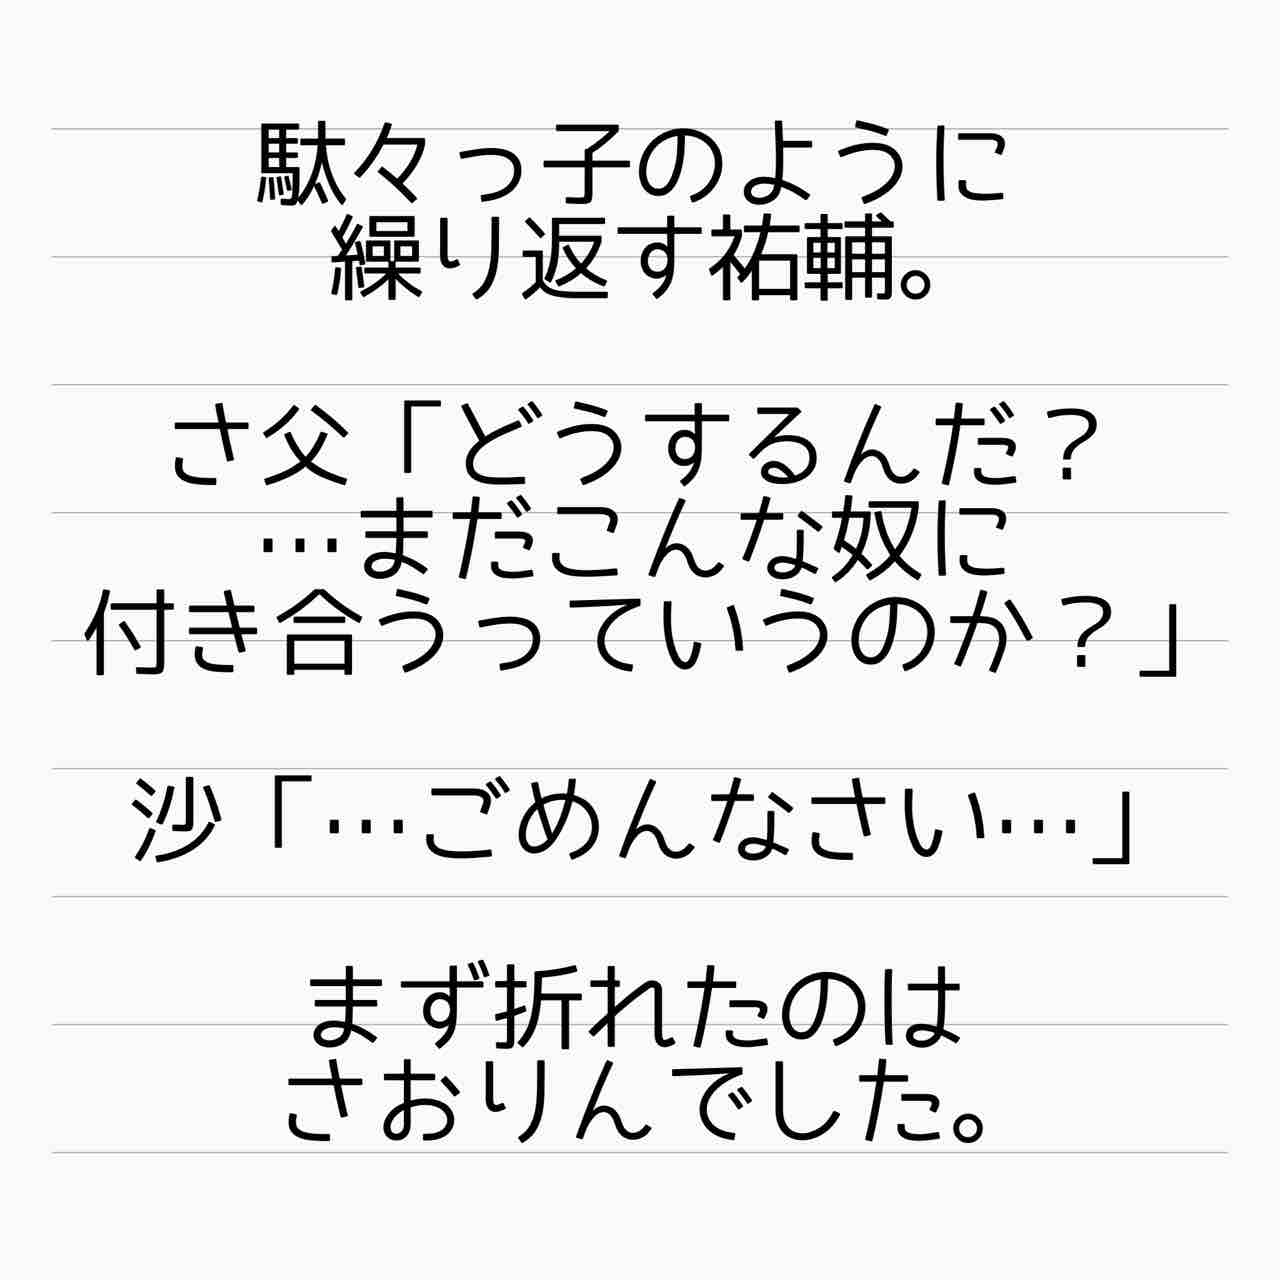 駄々っ子のように
繰り返す祐輔。
さ父「どうするんだ？
…まだこんな奴に
付き合うっていうのか？」
沙「…ごめんなさい…」
まず折れたのは
さおりんでした。